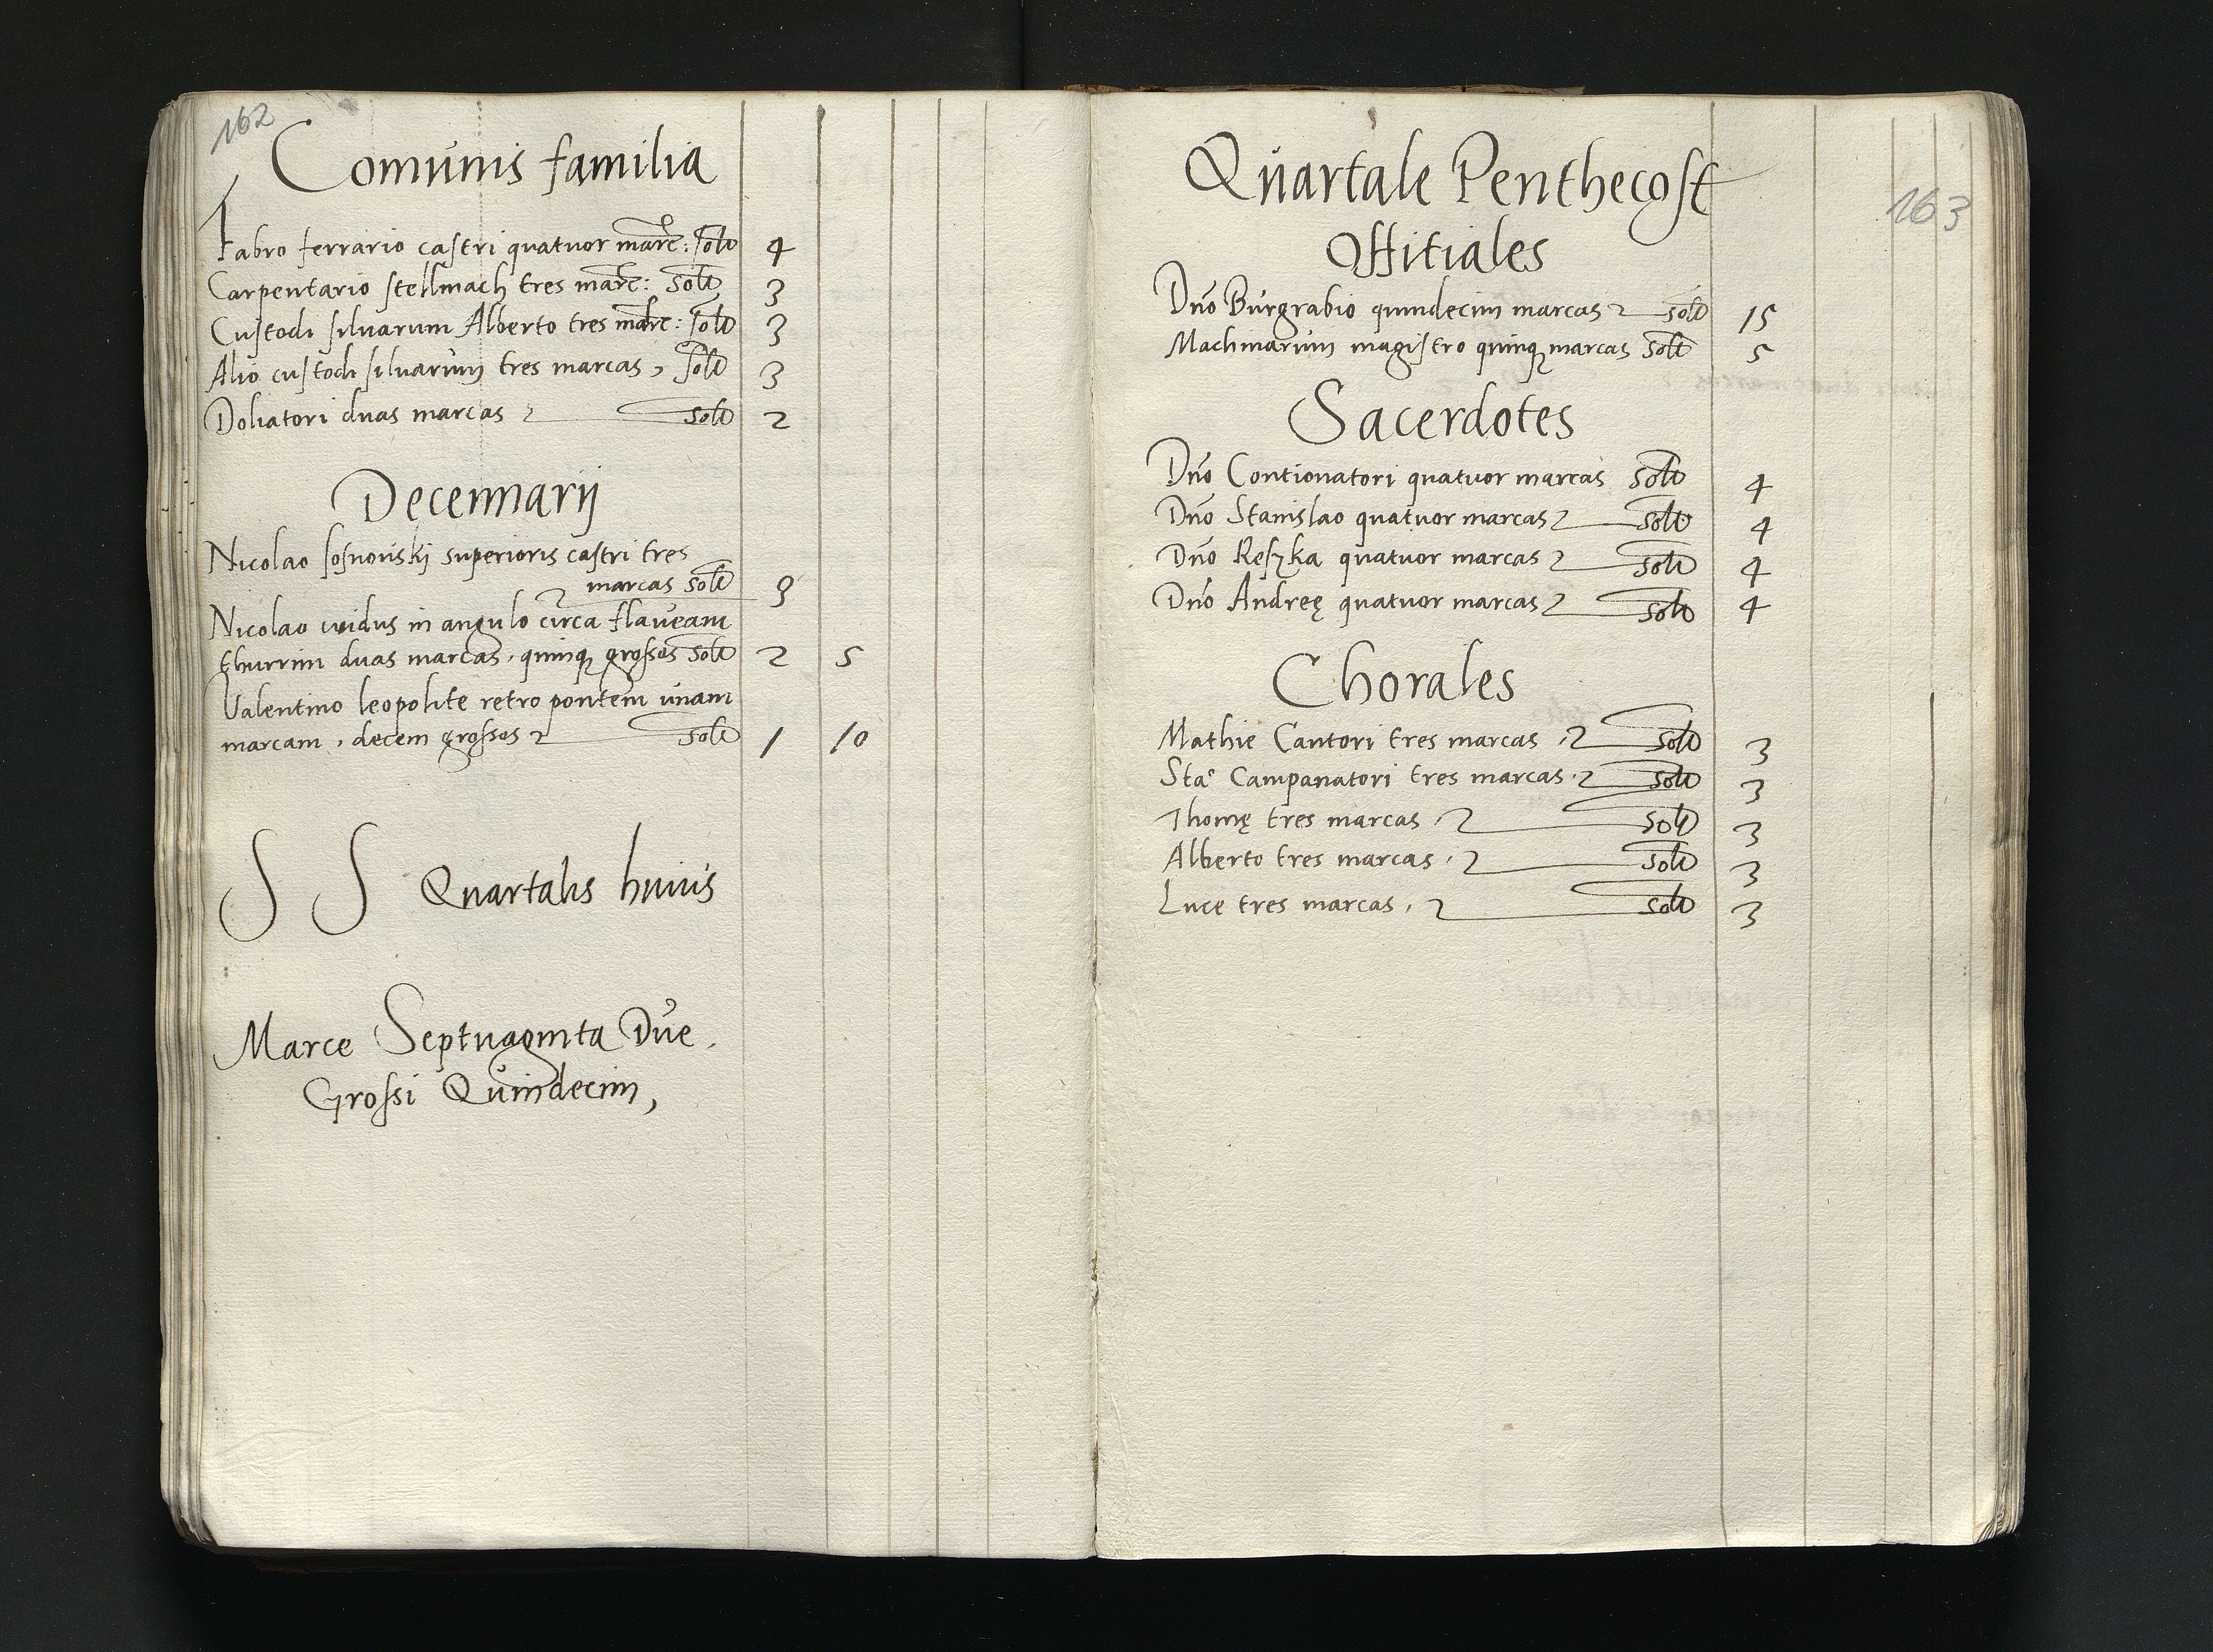 162
Comunis familia
Fabro ferrario castri quatuor marc: solv 4
Carpentario stellmach tres marc: solv 3
Custodi silvarum Alberto tres marc: solv 3
Alio custodi silvarum tres marcas, solv 3
Doliatori duas marcas solv 2
Decennarij
Nicolao sosnouskj superioris castri tres
marcas solv 3
Nicolao in angulo circa
duas marcas, quinq grossos solv 2 5
Valentino leopolite retro pontem unam
marcam, decem grossos solv 1 10
S S Quartalis huius
Marce Septuaginta Due.
Grossi Quindecim,
163
Quartale Penthecost
Offitiales
Dno Burgrabio quindecim marcas solv 15
Machinarum magistro quinq marcas solv 5
Sacerdotes
Dno Contionatori quatuor marcas solv 4
Dno Stanislao quatuor marcas solv 4
Dno Reszka quatuor marcas solv 4
Dno Andreę quatuor marcas solv 4
Chorales
Mathie Cantori tres marcas, solv 3
Sta: Campanatori tres marcas, solv 3
Thomę tres marcas, solv 3
Alberto tres marcas, solv 3
Luce tres marcas, solv 3